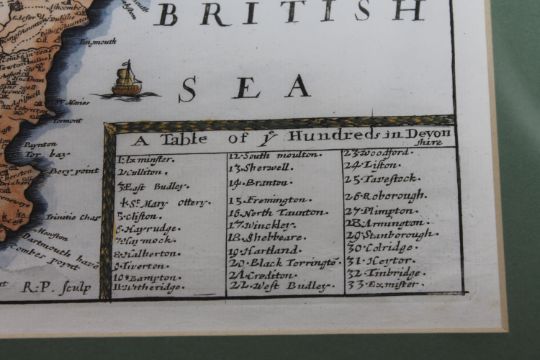 BRITISH
SEA
Tingmouth
St Maries
Tormont
Paynton
Tor bay
Bery poynt
Trinitie Chap
Dartmouth
Combes poynt
R:P. sculp
A Table of yͤ Hundreds in Devon
shire
1. Exminster.
2. Culliton.
3. East Budley.
4. St. Mary Ottery.
5. Clifton.
6. Hayrudge.
7. Haymock.
8. Halberton.
9. Tiverton.
10. Bampton.
11. Witheridge.
12. South moulton.
13. Sherwell.
14. Branton.
15. Fremington.
16. North Taunton.
17. Winckley.
18. Shebbeare.
19. Hartland.
20. Black Torringtō.
21. Crediton.
22. West Budley.
23. Woodford.
24. Liston.
25. Tavestock.
26. Roborough.
27. Plimpton.
28. Armington.
29. Stanborough.
30. Coldridge.
31. Heytor.
32. Tinbridge.
33. Exmister.